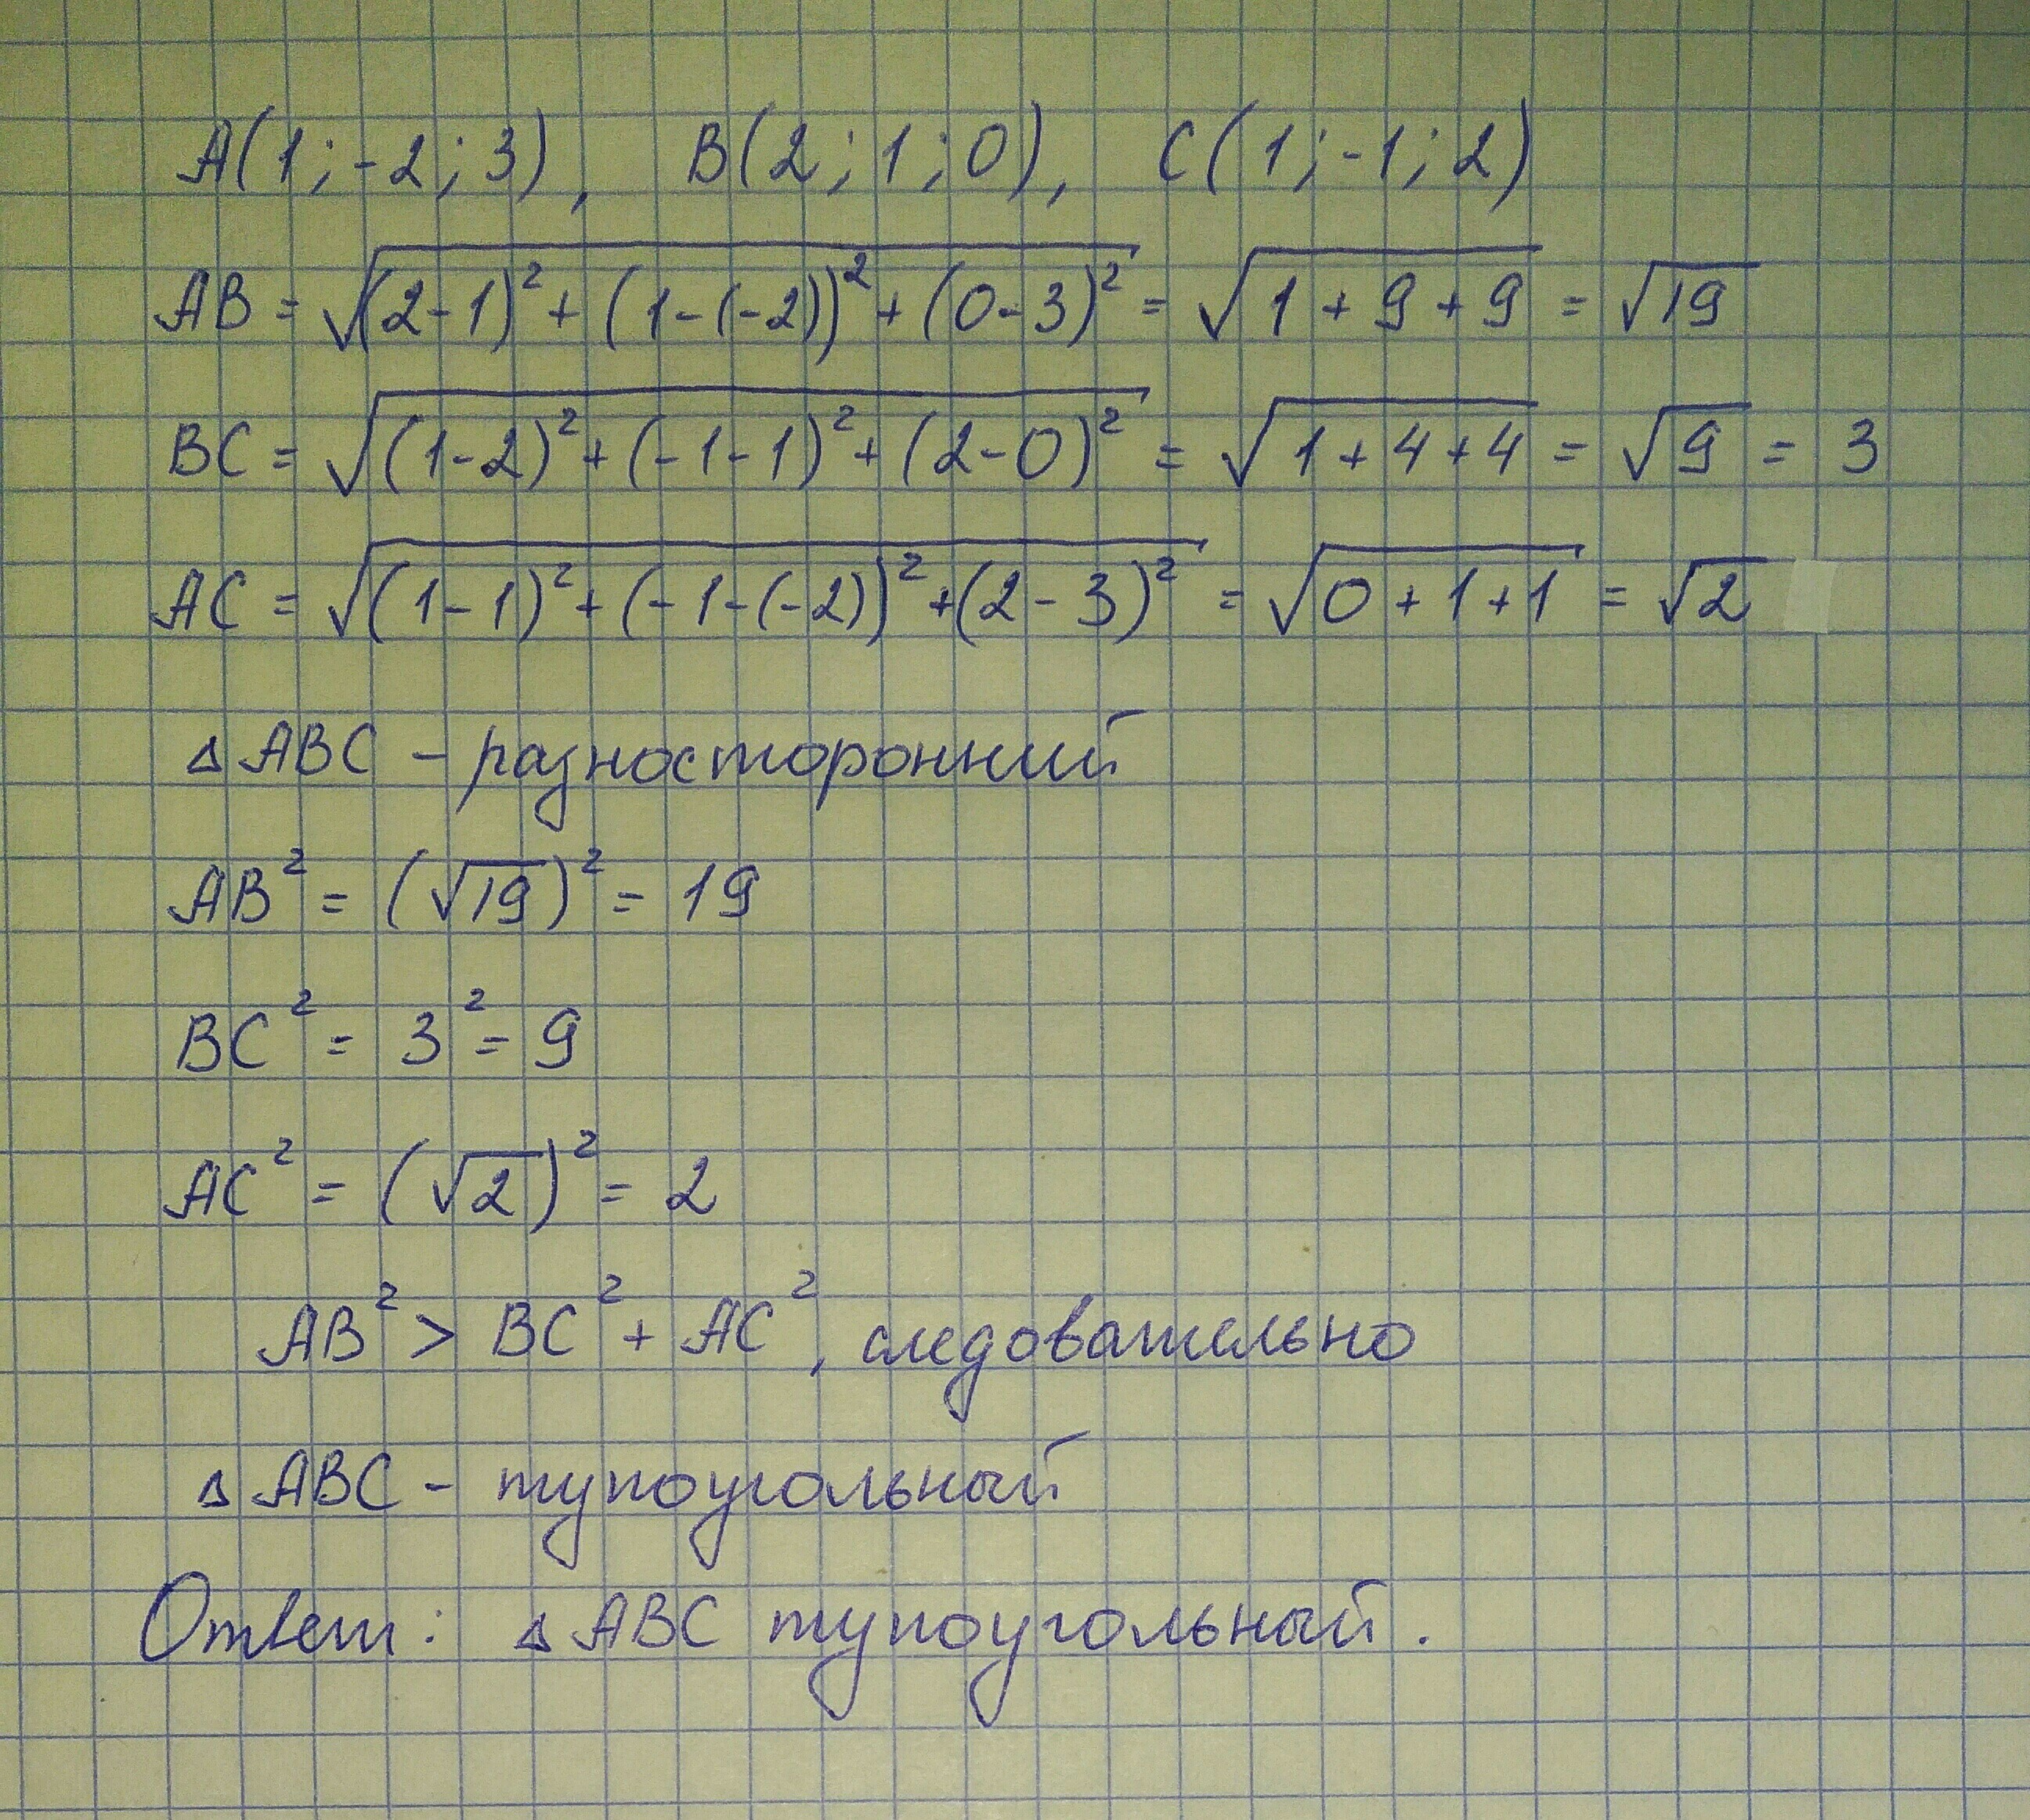 A(1;-2;3), B(2;1;0), C(1;-1;2)
AB = √((2-1)² + (1-(-2))² + (0-3)²) = √(1+9+9) = √19
BC = √((1-2)² + (-1-1)² + (2-0)²) = √(1+4+4) = √9 = 3
AC = √((1-1)² + (-1-(-2))² + (2-3)²) = √(0+1+1) = √2
△ABC – разносторонний
AB² = (√19)² = 19
BC² = 3² = 9
AC² = (√2)² = 2
AB² > BC² + AC², следовательно
△ABC – тупоугольный
Ответ: △ABC тупоугольный.